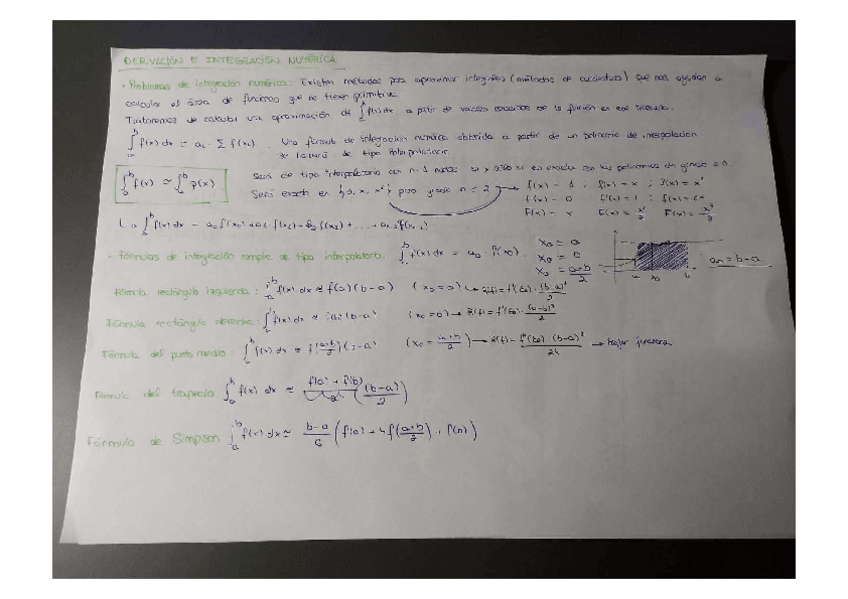 DERIVACIÓN E INTEGRACIÓN NUMÉRICA
· Problemas de integración numérica: Existen métodos para aproximar integrales (métodos de cuadratura) que nos ayudan a
calcular el área de funciones que no tienen primitiva.
Trataremos de calcular una aproximación de ∫_a^b f(x) dx a partir de valores conocidos de la función en ese intervalo.
∫_a^b f(x) dx ≈ a_i · Σ f(x_i). Una fórmula de integración numérica obtenida a partir de un polinomio de interpolación
se llamará de tipo interpolatorio.
∫_a^b f(x) ≈ ∫_a^b p(x)
Será de tipo interpolatorio con n+1 nodos si y sólo si es exacta con los polinomios de grado ≤ n.
Será exacta en {1, x, x²} para grado n = 2 → f(x) = 1 ; f(x) = x ; f(x) = x²
f'(x) = 0 f'(x) = 1 ; f'(x) = 2x
F(x) = x F(x) = x²/2 F(x) = x³/3
↳ ∫_a^b f(x) dx = a_0 f(x_0) + a_1 · f(x_1) + a_2 f(x_2) + ... +
· Fórmulas de integración simple de tipo interpolatorio: ∫_a^b f(x) dx = a_0 · f(x_0).
x_0 = a
x_0 =
x_0 = a+b/2
a x_0 b
a_0 = b-a
Fórmula rectángulo izquierda: ∫_a^b f(x) dx ≈ f(a)(b-a) (x_0 = a) → R(f) = f'(ξ_0) · (b-a)²/2
Fórmula rectángulo derecha: ∫_a^b f(x) dx ≈ (b-a) → R(f) = f'(ξ_0) · (b-a)²/2
Fórmula del punto medio: ∫_a^b f(x) dx ≈ f(a+b/2)(b-a) (x_0 = a+b/2) → R(f) = (b-a)³/24 →
Fórmula del trapecio ∫_a^b f(x) dx ≈ f(a) + f(b) (b-a/2)
Fórmula de Simpson ∫_a^b f(x) dx ≈ b-a/6 (f(a) + 4f(a+b/2) + f(b))